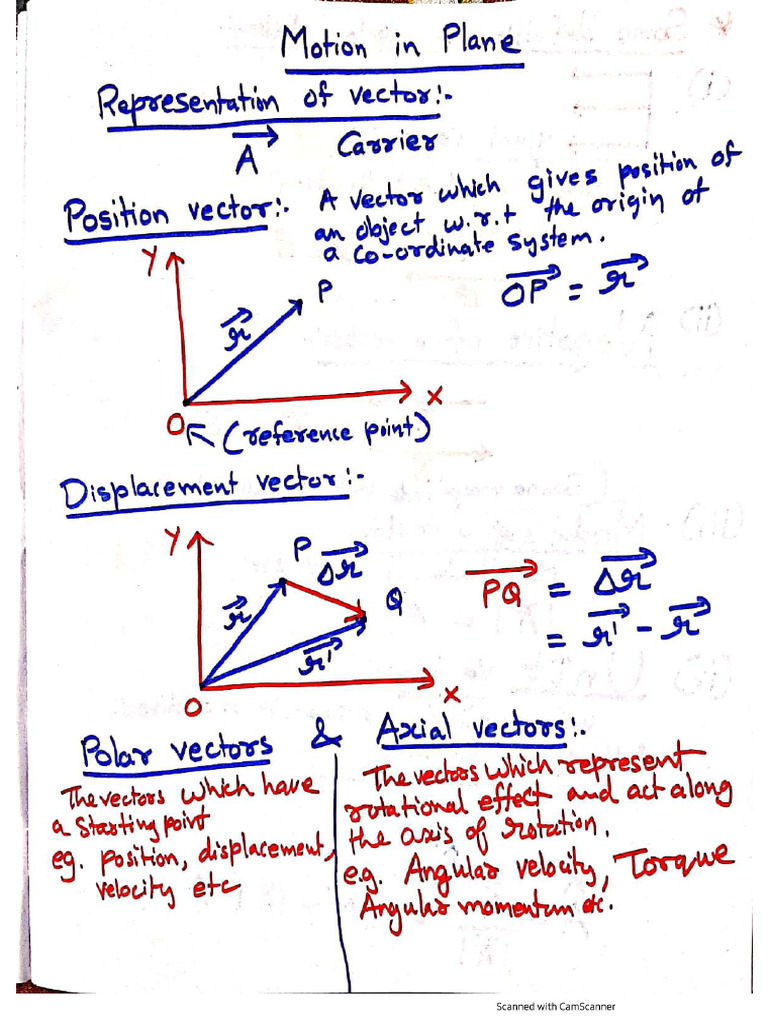 Motion in Plane
Representation of vector:-
A⃗ Carrier
Position vector:- A vector which gives position of
an object w.r.t the origin of
a co-ordinate system.
Y
P
OP⃗ = r⃗
r⃗
X
O
(reference point)
Displacement vector:-
Y
P
Δr⃗
Q
PQ⃗ = Δr⃗
= r'⃗ - r⃗
r⃗
r'⃗
X
O
Polar vectors & Axial vectors:-
The vectors which have
a starting point
eg. position, displacement,
velocity etc
The vectors which represent
rotational effect and act along
the axis of rotation.
e.g. Angular velocity, Torque
Angular momentum etc.
Scanned with CamScanner